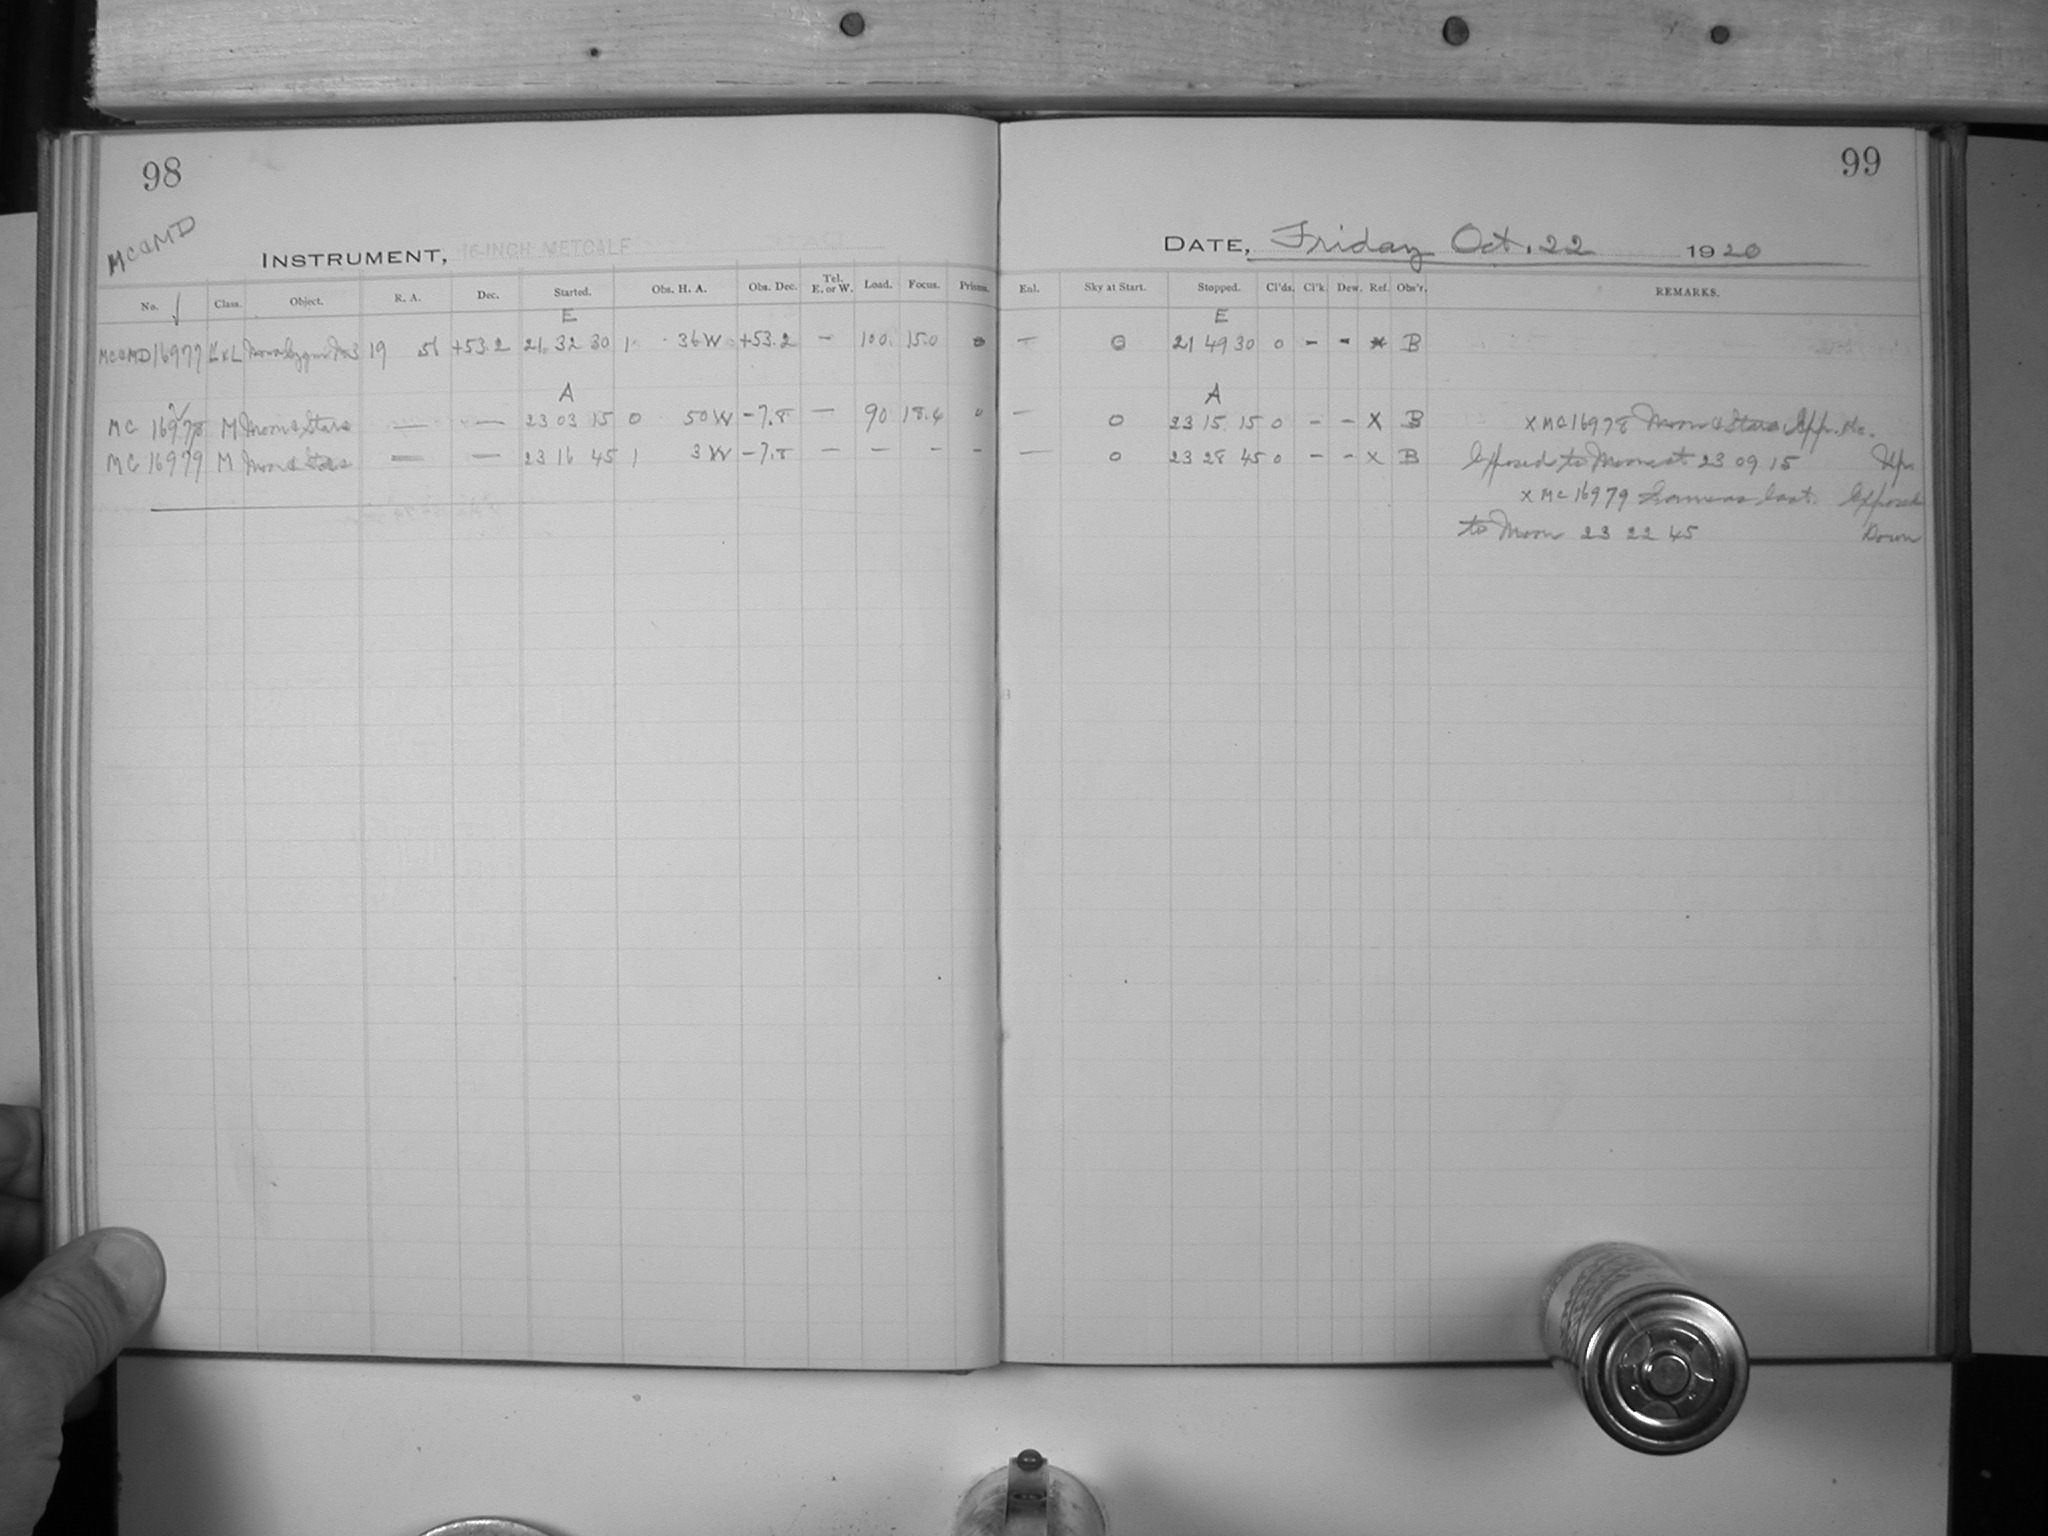 98
MC&MD
INSTRUMENT, 16-INCH METCALF
No. Class. Object. R. A. Dec. Started. Obs. H. A. Obs. Dec. Tel. E. or W. Load. Focus. Prisms.
E
MC&MD 16977 19 56 +53.2 21 32 30 1 36 W +53.2 — 100 15.0 0
A
MC 16978 M Moon & Stars — — 23 03 15 0 50 W -7.8 — 90 18.4 0
MC 16979 M Moon & Stars — — 23 16 45 1 3 W -7.8 — — — —
99
DATE, Friday Oct. 22 1920
Enl. Sky at Start. Stopped. Cl'ds. Cl'k. Dew. Ref. Obs'r. REMARKS.
E
— 0 21 49 30 0 - - * B
A
— 0 23 15 15 0 - - X B X MC 16978 Moon & Stars
— 0 23 28 45 0 - - X B Exposed to Moon at 23 09 15 Up.
X MC 16979 Same as last. Exposed
to Moon 23 22 45 Down